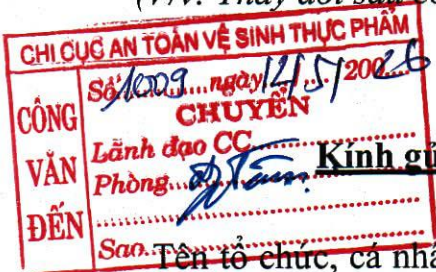 (V/v: Thay đổi sau cô
CHI CỤC AN TOÀN VỆ SINH THỰC PHẨM
CÔNG VĂN ĐẾN
Số: 1009 ngày 14/5/2026
CHUYỂN
Lãnh đạo CC
Phòng
Kính gử
Sao
Tên tổ chức, cá nhâ